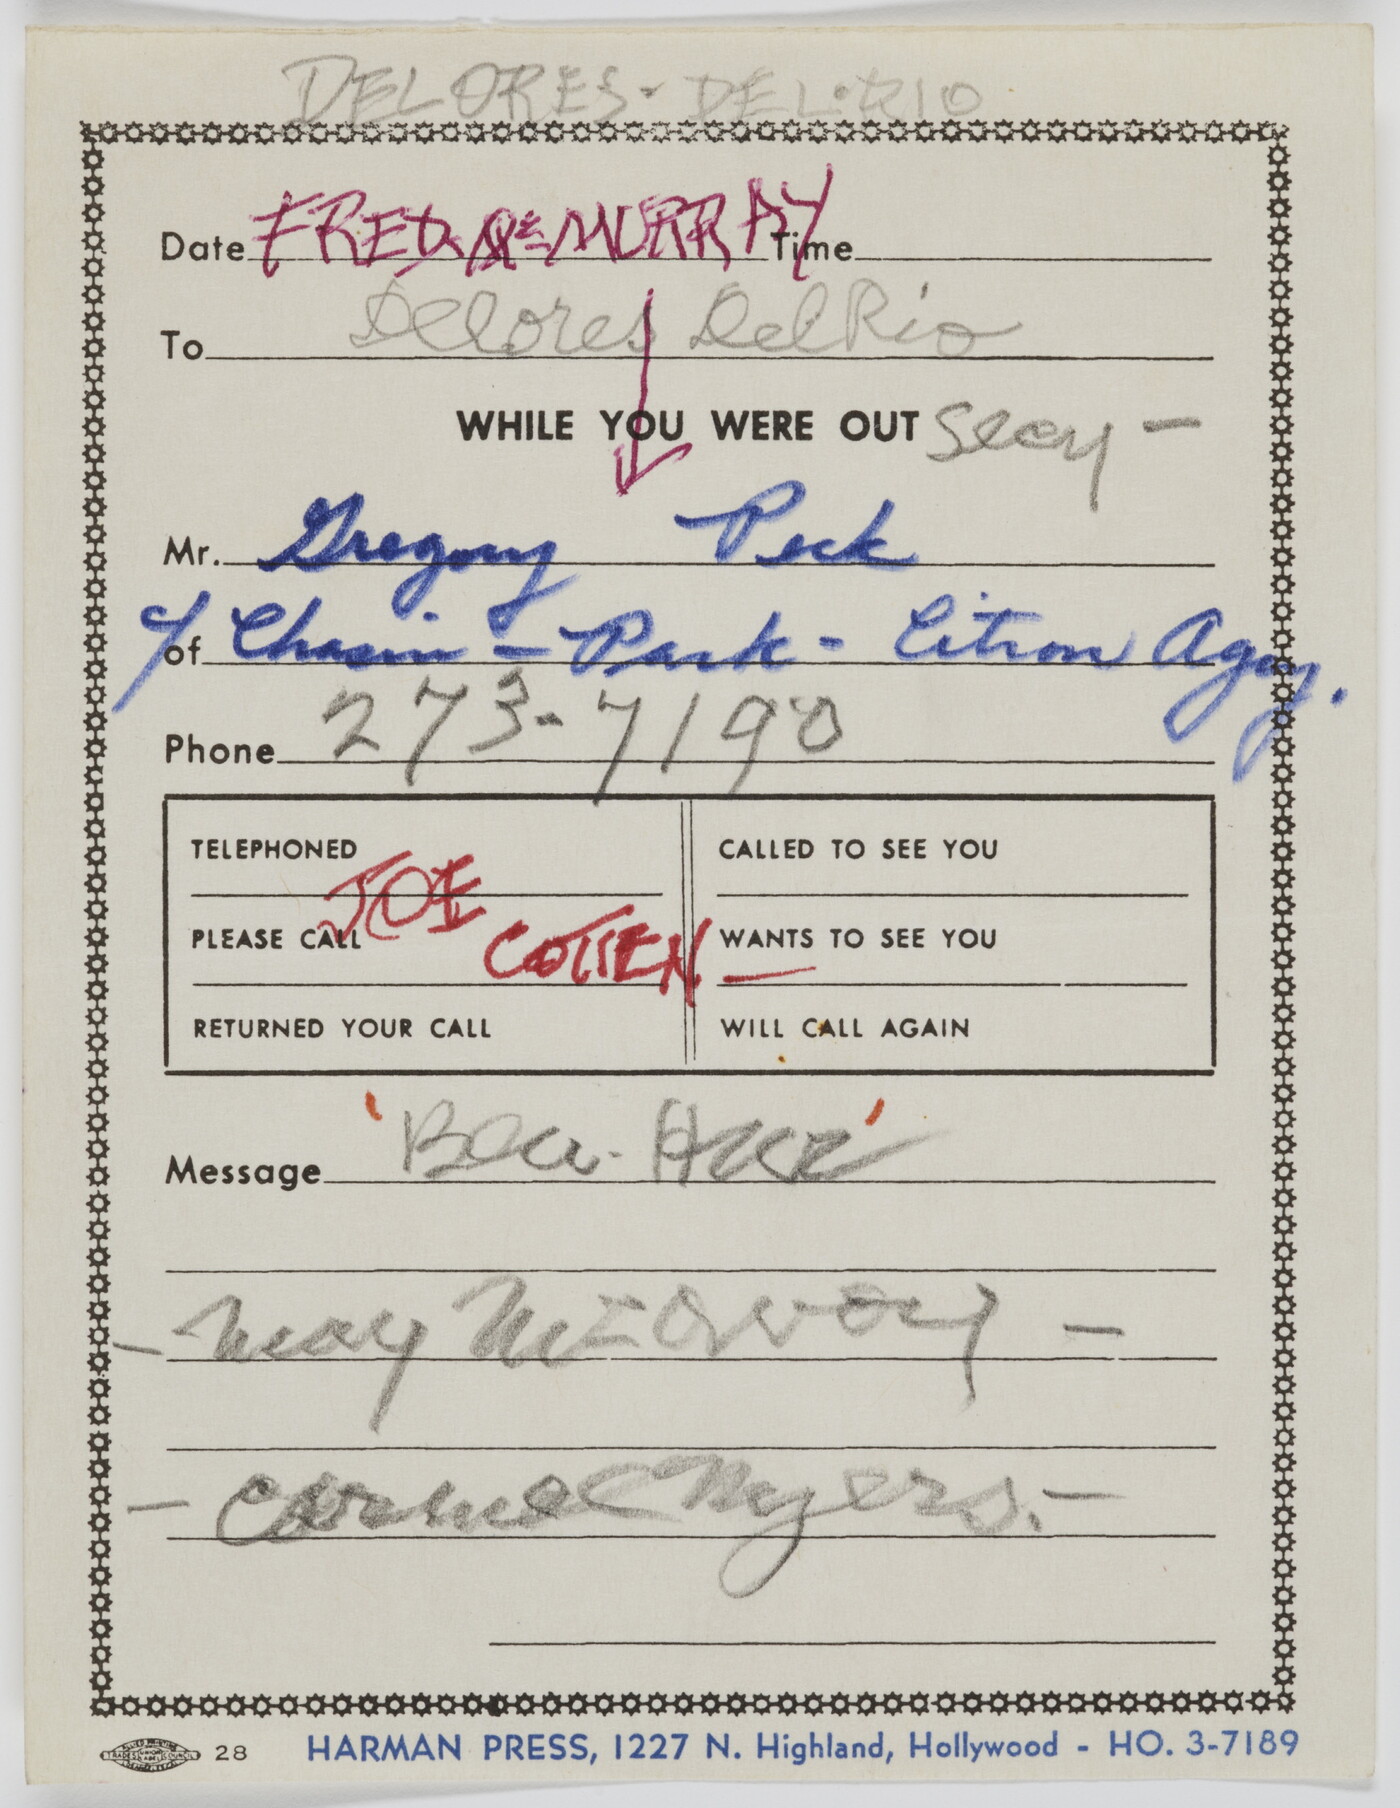 DELORES - DEL RIO
Date FRED Mc MURRAY Time
To Delores Del Rio
WHILE YOU WERE OUT
Mr. Gregory Peck
of c/ Chasin - Park - Citron Agcy.
Phone 273-7190
TELEPHONED CALLED TO SEE YOU
JOE
PLEASE CALL WANTS TO SEE YOU
COTTEN —
RETURNED YOUR CALL WILL CALL AGAIN
Message 'Ben-Hur'
— May McAvoy —
— Carmel Myers. —
28 HARMAN PRESS, 1227 N. Highland, Hollywood - HO. 3-7189